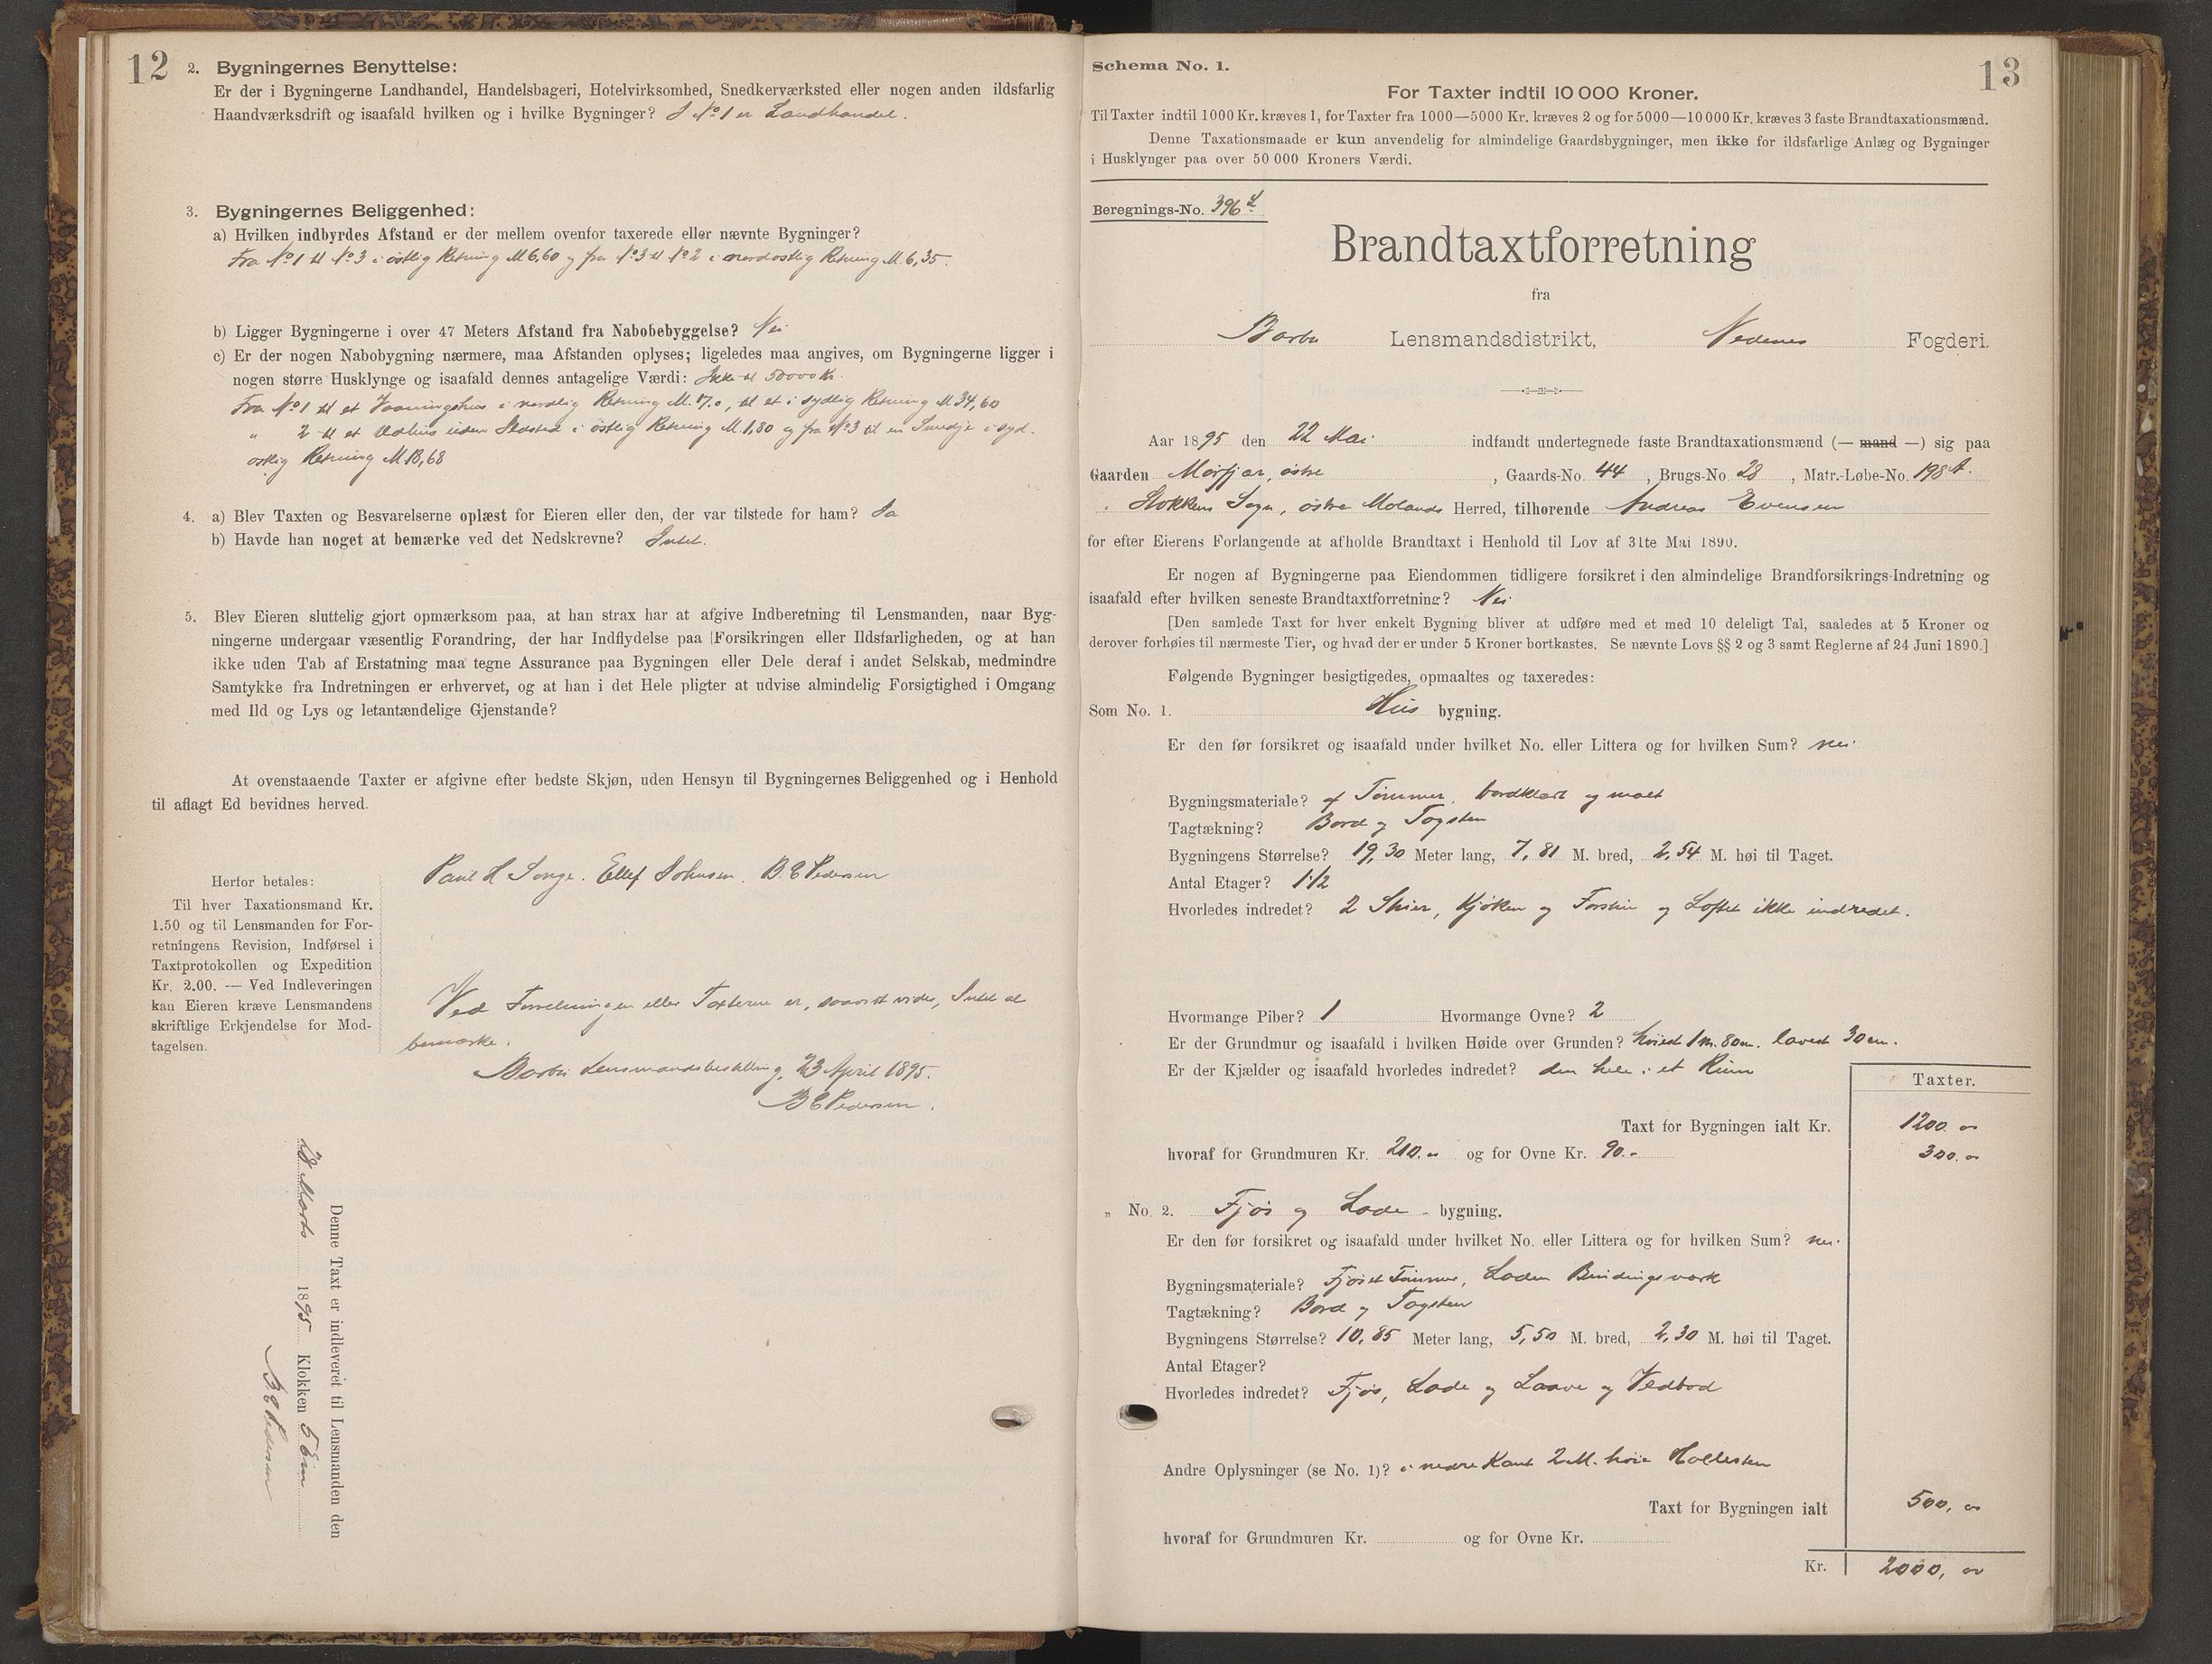 12
2. Bygningernes Benyttelse:
Er der i Bygningerne Landhandel, Handelsbageri, Hotelvirksomhed, Snedkerværksted eller nogen anden ildsfarlig
Haandværksdrift og isaafald hvilken og i hvilke Bygninger? I No 1 er Landhandel.
3. Bygningernes Beliggenhed:
a) Hvilken indbyrdes Afstand er der mellem ovenfor taxerede eller nævnte Bygninger?
Fra No 1 til No 3 i østlig Retning M 6,60 og fra No 3 til No 2 i nordostlig Retning M. 6,35.
b) Ligger Bygningerne i over 47 Meters Afstand fra Nabobebyggelse? Nei
c) Er der nogen Nabobygning nærmere, maa Afstanden oplyses; ligeledes maa angives, om Bygningerne ligger i
nogen større Husklynge og isaafald dennes antagelige Værdi: Ikke til 50000 Kr.
Fra No 1 til et Vaaningshus i nordlig Retning M. 17.0, til et i sydlig Retning M 34,60
" 2 til et Udhus uden Ildsted i østlig Retning M. 1,80 og fra No 3 til en Smedje i syd-
ostlig Retning M 18,68
4. a) Blev Taxten og Besvarelserne oplæst for Eieren eller den, der var tilstede for ham? Ja
b) Havde han noget at bemærke ved det Nedskrevne? Intet.
5. Blev Eieren sluttelig gjort opmærksom paa, at han strax har at afgive Indberetning til Lensmanden, naar Byg-
ningerne undergaar væsentlig Forandring, der har Indflydelse paa Forsikringen eller Ildsfarligheden, og at han
ikke uden Tab af Erstatning maa tegne Assurance paa Bygningen eller Dele deraf i andet Selskab, medmindre
Samtykke fra Indretningen er erhvervet, og at han i det Hele pligter at udvise almindelig Forsigtighed i Omgang
med Ild og Lys og letantændelige Gjenstande?
At ovenstaaende Taxter er afgivne efter bedste Skjøn, uden Hensyn til Bygningernes Beliggenhed og i Henhold
til aflagt Ed bevidnes herved.
Paul H Songe. Ellef Johnsen. B. E Pedersen
Herfor betales:
Til hver Taxationsmand Kr.
1.50 og til Lensmanden for For-
retningens Revision, Indførsel i
Taxtprotokollen og Expedition
Kr. 2.00. — Ved Indleveringen
kan Eieren kræve Lensmandens
skriftlige Erkjendelse for Mod-
tagelsen.
Ved Forretningen eller Taxterne er, saavidt vides, Intet at
bemærke.
Barbu Lensmandsbestilling, 23 April 1895.
B E Pedersen.
Denne Taxt er indleveret til Lensmanden den
28 Marts 1895 Klokken 5 Em
B E Pedersen
13
Schema No. 1.
For Taxter indtil 10 000 Kroner.
Til Taxter indtil 1000 Kr. kræves 1, for Taxter fra 1000—5000 Kr. kræves 2 og for 5000—10 000 Kr. kræves 3 faste Brandtaxationsmænd.
Denne Taxationsmaade er kun anvendelig for almindelige Gaardsbygninger, men ikke for ildsfarlige Anlæg og Bygninger
i Husklynger paa over 50 000 Kroners Værdi.
Beregnings-No. 396
Brandtaxtforretning
fra
Barbu Lensmandsdistrikt, Nedenes Fogderi.
Aar 1895 den 22 Mai indfandt undertegnede faste Brandtaxationsmænd (— mand —) sig paa
Gaarden Mørfjær, østre, Gaards-No. 44, Brugs-No. 28, Matr.-Løbe-No. 198 A.
i Stokken Sogn, østre Molands Herred, tilhørende Andreas Evensen
for efter Eierens Forlangende at afholde Brandtaxt i Henhold til Lov af 31te Mai 1890.
Er nogen af Bygningerne paa Eiendommen tidligere forsikret i den almindelige Brandforsikrings-Indretning og
isaafald efter hvilken seneste Brandtaxtforretning? Nei
[Den samlede Taxt for hver enkelt Bygning bliver at udføre med et med 10 deleligt Tal, saaledes at 5 Kroner og
derover forhøies til nærmeste Tier, og hvad der er under 5 Kroner bortkastes. Se nævnte Lovs §§ 2 og 3 samt Reglerne af 24 Juni 1890.]
Følgende Bygninger besigtigedes, opmaaltes og taxeredes:
Som No. 1. Hus bygning.
Er den før forsikret og isaafald under hvilket No. eller Littera og for hvilken Sum? nei
Bygningsmateriale? af Tømmer, bordklædt og malt
Tagtækning? Bord og Tagsten
Bygningens Størrelse? 19,30 Meter lang, 7,81 M. bred, 2,54 M. høi til Taget.
Antal Etager? 1 1/2
Hvorledes indredet? 2 Stuer, Kjøken og Forstue og Loftet ikke indredet.
Hvormange Piber? 1 Hvormange Ovne? 2
Er der Grundmur og isaafald i hvilken Høide over Grunden? høiest 1 m. 80 cm. lavest 30 cm.
Er der Kjælder og isaafald hvorledes indredet? den hele i et Rum
Taxter.
Taxt for Bygningen ialt Kr. 1200 "
hvoraf for Grundmuren Kr. 210. " og for Ovne Kr. 90. - 300. "
" No. 2. Fjøs og Lade - bygning.
Er den før forsikret og isaafald under hvilket No. eller Littera og for hvilken Sum? nei.
Bygningsmateriale? Fjøset Tømmer, Laden Bindingsværk
Tagtækning? Bord og Tagsten
Bygningens Størrelse? 10,85 Meter lang, 5,50 M. bred, 2,30 M. høi til Taget.
Antal Etager?
Hvorledes indredet? Fjøs, Lade og Laave og Vedbod
Andre Oplysninger (se No. 1)? i nedre Kant 2 M. høie Hollesten
Taxt for Bygningen ialt 500, "
hvoraf for Grundmuren Kr. og for Ovne Kr.
Kr. 2000, "